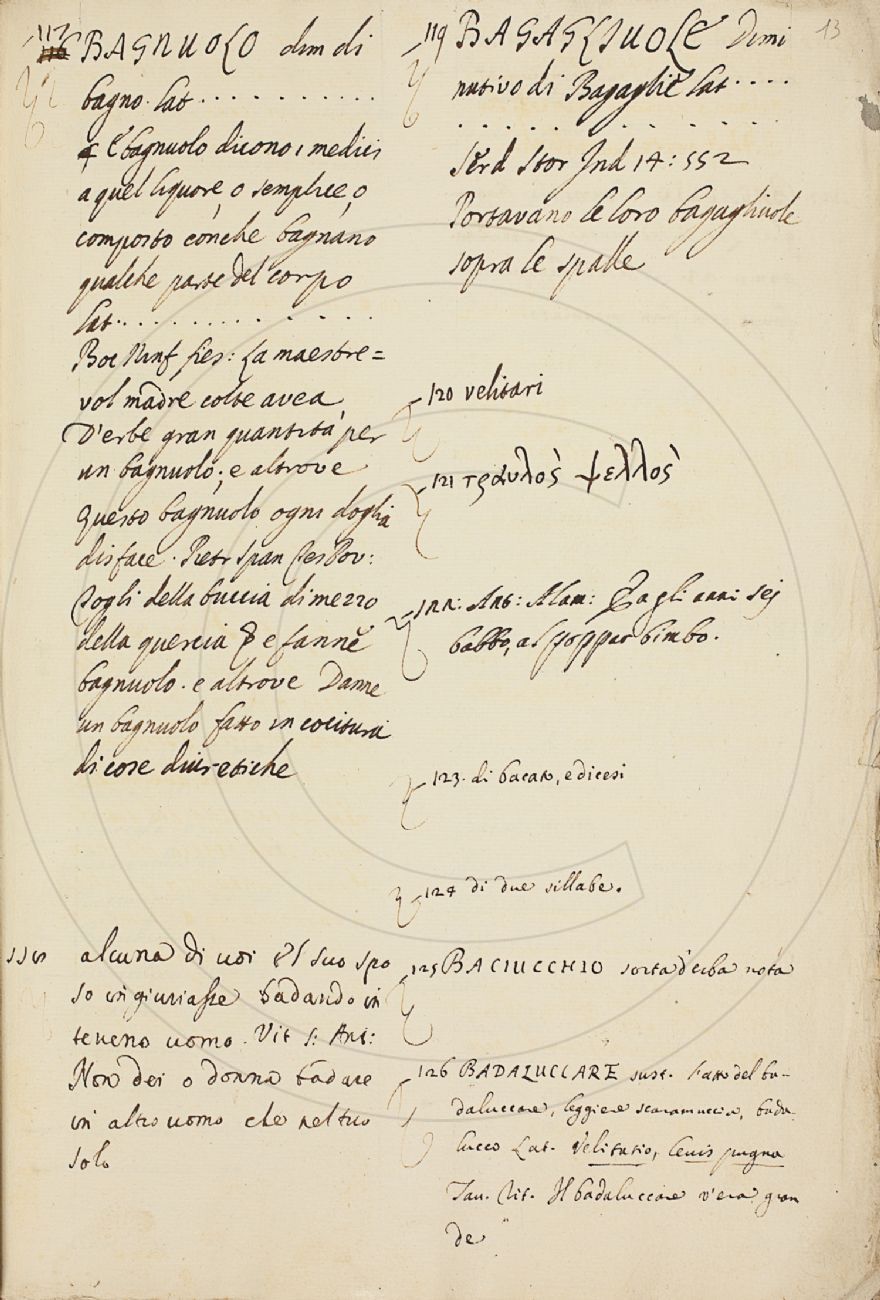 117
BAGNUOLO dim di
bagno. Lat. . . . . . . . . . .
E bagnuolo dicono i medici
a quel liquore, o semplice, o
composto con che bagnano
qualche parte del corpo
Lat. . . . . . . . . . .
Boc Ninf fies: La maestre=
vol madre colte avea
D'erbe gran quantità per
un bagnuolo; e altrove
Questo bagnuolo ogni doglia
disface. Pietr Span
Togli della buccia di mezzo
della quercia e fanne
bagnuolo. e altrove Danne
un bagnuolo fatto in cocitura
di cose diuretiche
118 alcuna di voi el suo spo
so ingiuriasse badando in
teneno uomo. Vit S: Ant:
Non dei o donna badare
in altro uomo che nel tuo
solo
13
119 BAGAGLIUOLE Dimi
nutivo di Bagaglie Lat. . . .
. . . . . . . .
Serd Stor Ind 14: 552
Portavano le loro bagagliuole
sopra le spalle
120 velitari
121 τραυλὸς ψελλὸς
122: Ant: Alam: agli anni sei
babbo, al poppar bimbo.
123. di bacato, e dicesi
124 di due sillabe.
125 BACIUCCHIO sorta d'erba nota
126 BADALUCCARE sust. Fatto del ba-
daluccare, leggiere scaramuccia, bada
lucco Lat. Velitatio, levis pugna
Tav. Rit. Il badaluccare v'era gran
de